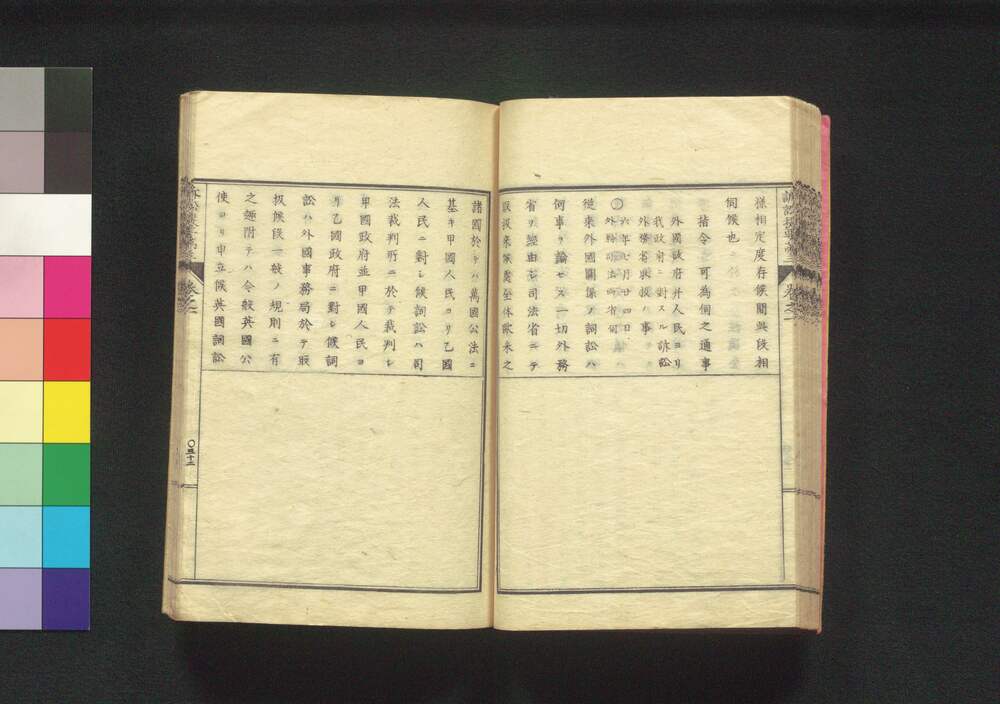 様相定度存候間此段相
伺候也
指令 可為伺之通事
外國政府并人民ヨリ
我政府ニ對スル訴訟
外務省ニ於テ扱フ事
〇六年七月廿四日
外務司法両省伺
從來外國關係ノ詞訟ハ
何事ヲ論セス一切外務
省ヲ經由シ司法省ニテ
取扱來候處全体歐米之
諸國於テハ萬國公法ニ
基キ甲國人民ヨリ乙國
人民ニ對シ候詞訟ハ司
法裁判所ニ於テ裁判シ
甲國政府並甲國人民ヨ
リ乙國政府ニ對シ候詞
訟ハ外國事務局於テ取
扱候段一般ノ規則ニ有
之趣附テハ今般英國公
使ヨリ申立候英國詞訟
卷之二
〇五十二